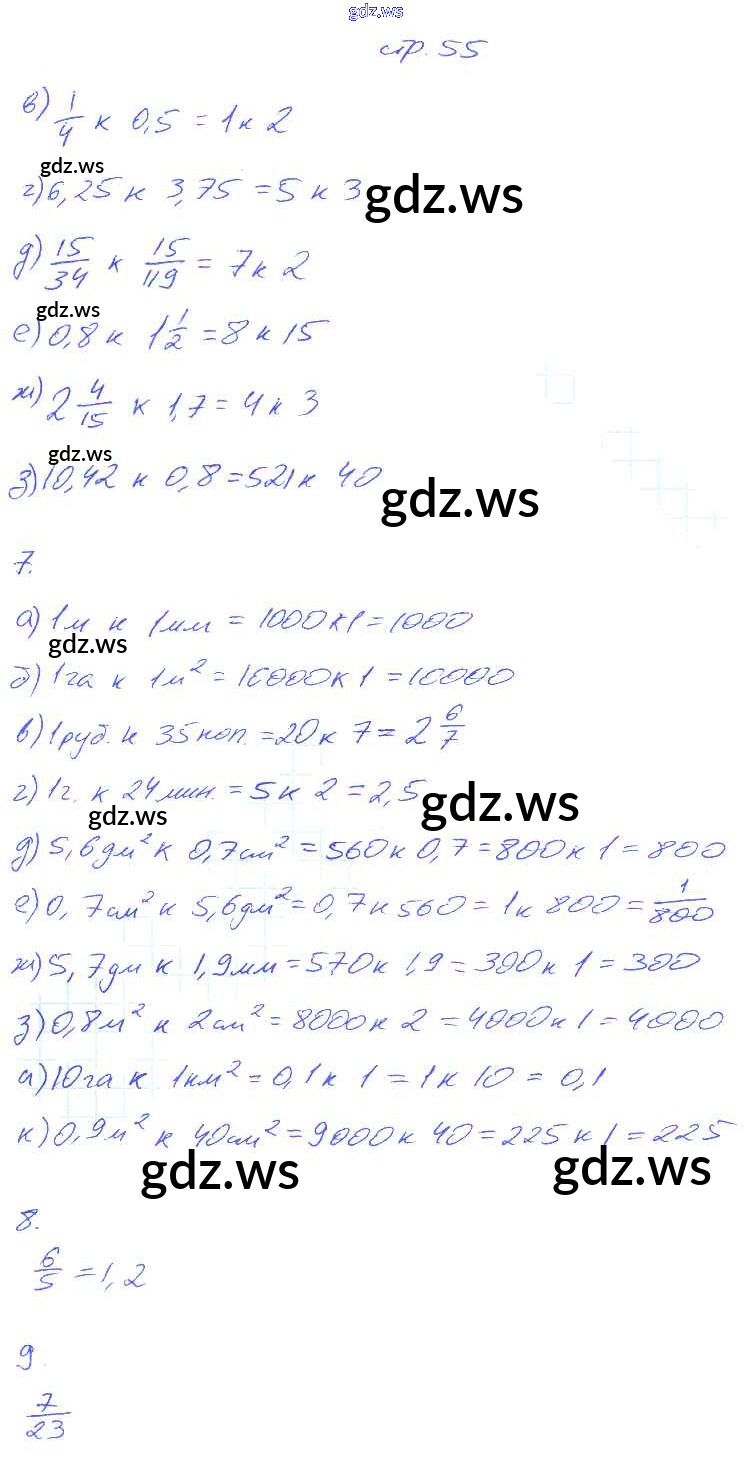 gdz.ws
стр. 55
в) 1/4 к 0,5 = 1 к 2
gdz.ws
г) 6,25 к 3,75 = 5 к 3
gdz.ws
д) 15/34 к 15/119 = 7 к 2
gdz.ws
е) 0,8 к 1 1/2 = 8 к 15
ж) 2 4/15 к 1,7 = 4 к 3
gdz.ws
з) 10,42 к 0,8 = 521 к 40
gdz.ws
7.
а) 1м к 1мм = 1000 к 1 = 1000
gdz.ws
б) 1га к 1м² = 10000 к 1 = 10000
в) 1руб. к 35коп. = 20 к 7 = 2 6/7
г) 1г. к 24мин. = 5 к 2 = 2,5
gdz.ws
gdz.ws
д) 5,6дм² к 0,7см² = 560 к 0,7 = 800 к 1 = 800
е) 0,7см² к 5,6дм² = 0,7 к 560 = 1 к 800 = 1/800
ж) 5,7дм к 1,9мм = 570 к 1,9 = 300 к 1 = 300
з) 0,8м² к 2см² = 8000 к 2 = 4000 к 1 = 4000
и) 10га к 1км² = 0,1 к 1 = 1 к 10 = 0,1
к) 0,9м² к 40см² = 9000 к 40 = 225 к 1 = 225
gdz.ws
gdz.ws
8.
6/5 = 1,2
9.
7/23